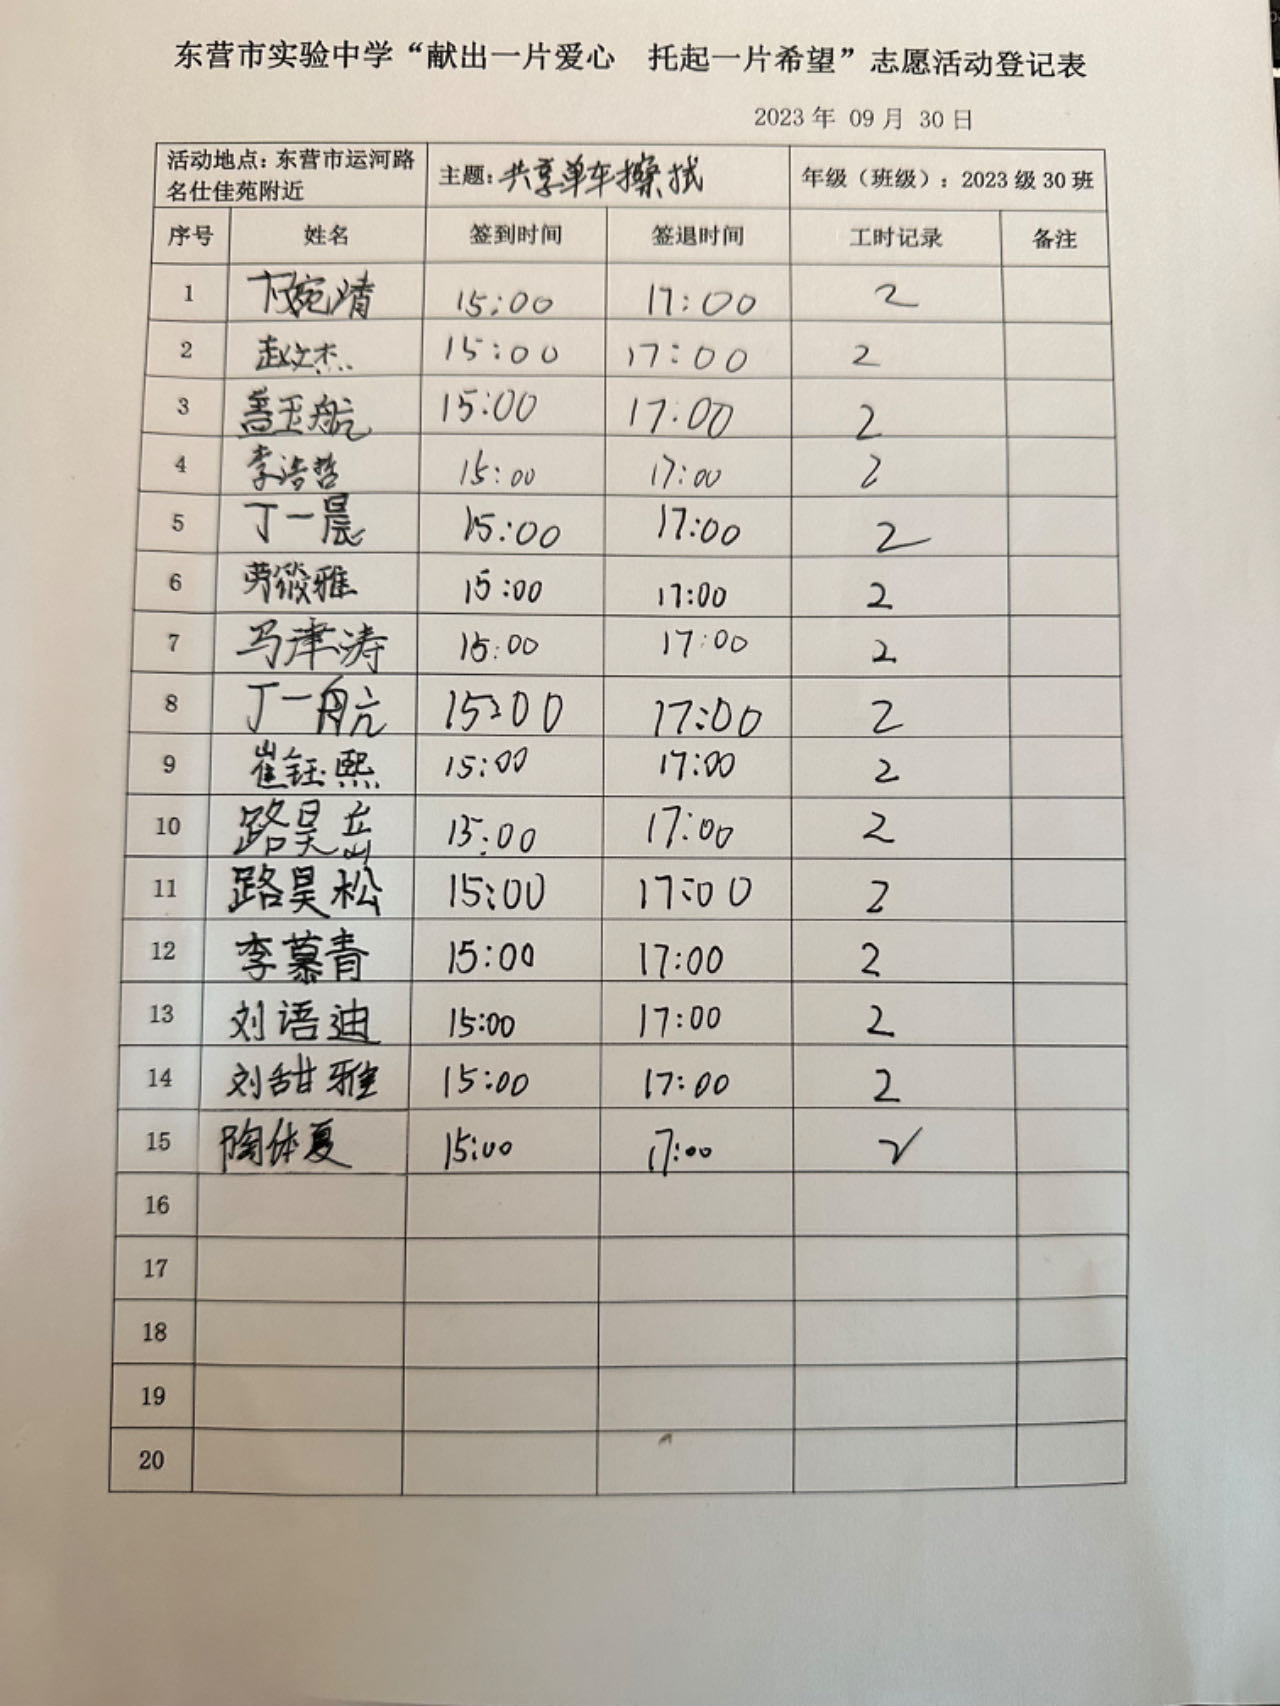 东营市实验中学“献出一片爱心 托起一片希望”志愿活动登记表
2023 年 09 月 30 日
活动地点：东营市运河路 主题：共享单车擦拭 年级（班级）：2023 级 30 班
名仕佳苑附近
序号 姓名 签到时间 签退时间 工时记录 备注
1 卞婉清 15:00 17:00 2
2 赵文杰 15:00 17:00 2
3 盖玉航 15:00 17:00 2
4 李浩哲 15:00 17:00 2
5 丁一晨 15:00 17:00 2
6 劳筱雅 15:00 17:00 2
7 马津涛 15:00 17:00 2
8 丁一航 15:00 17:00 2
9 崔钰熙 15:00 17:00 2
10 路昊岳 15:00 17:00 2
11 路昊松 15:00 17:00 2
12 李慕青 15:00 17:00 2
13 刘语迪 15:00 17:00 2
14 刘甜雅 15:00 17:00 2
15 陶体夏 15:00 17:00 2
16
17
18
19
20